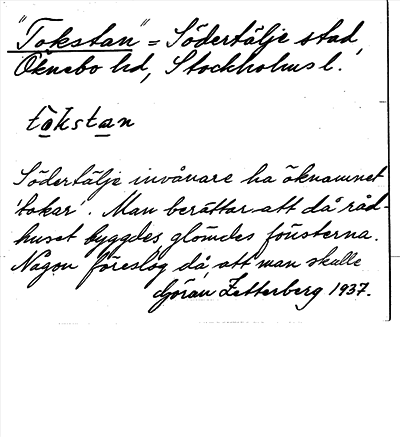 "Tokstan" = Södertälje stad,
Öknebo hd, Stockholms l.
tokstan
Södertälje invånare ha öknamnet
'tokar'. Man berättar att då råd-
huset byggdes, glömdes fönsterna.
Någon föreslog då, att man skulle
Göran Zetterberg 1937.